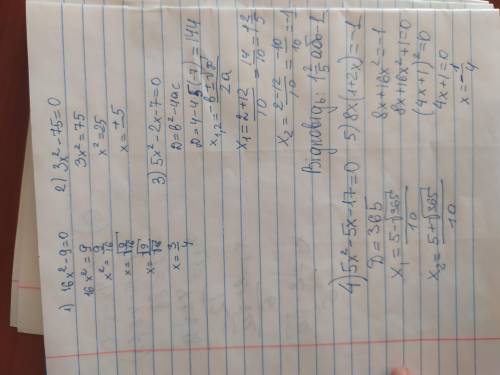 1) 16x²-9=0
16x²=9
x²=9/16
x=√9/16
x=√9/√16
x=3/4
2) 3x²-75=0
3x²=75
x²=25
x=±5
3) 5x²-2x-7=0
D=b²-4ac
D=4-4·5(-7)=144
x₁,₂=-b±√D/2a
x₁=2+12/10=14/10=1 2/5
x₂=2-12/10=-10/10=-1
Відповідь: 1 2/5 або -1
4) 5x²-5x-17=0
D=365
x₁=5-√365/10
x₂=5+√365/10
5) 8x(1+2x)=-1
8x+16x²=-1
8x+16x²+1=0
(4x+1)²=0
4x+1=0
x=-1/4